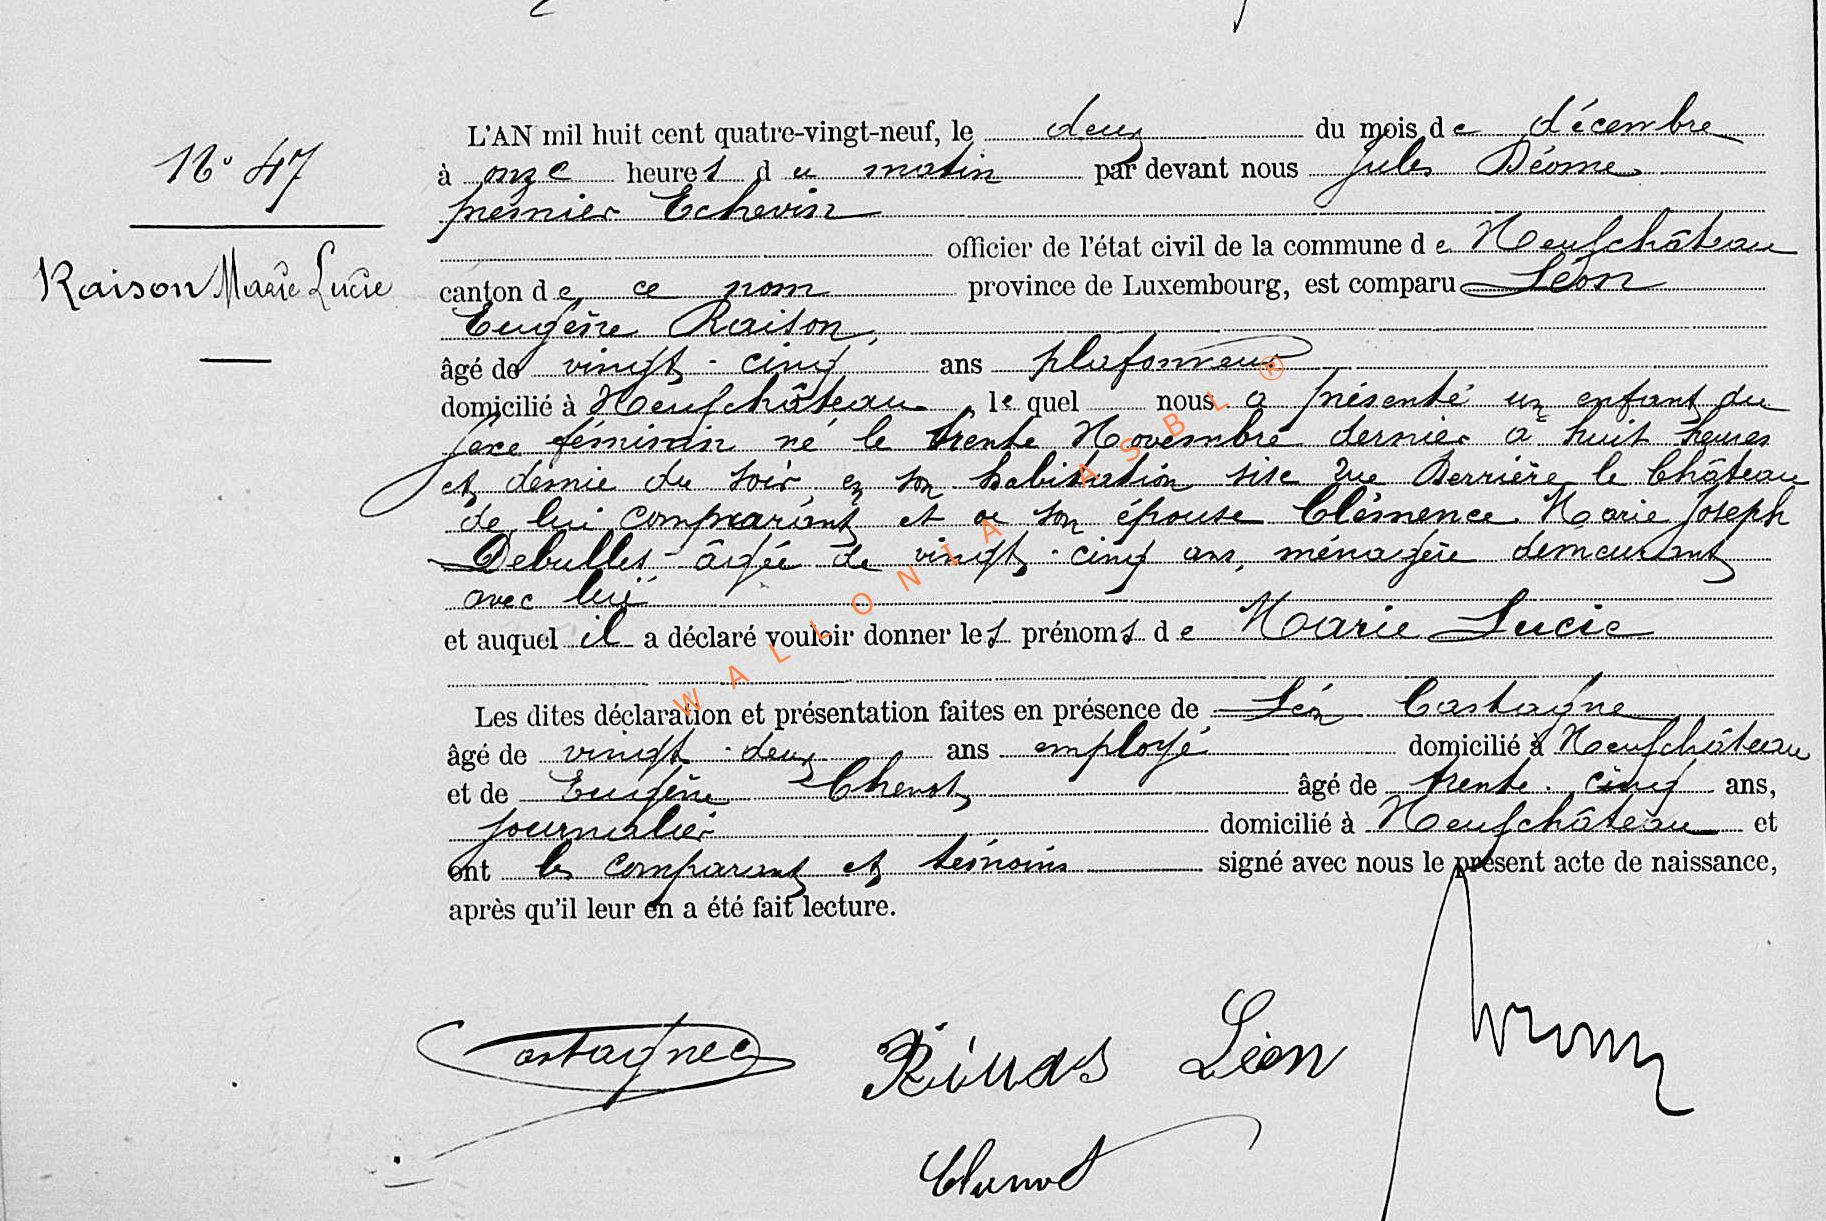 N° 47
Raison Marie Lucie
L'AN mil huit cent quatre-vingt-neuf, le deux du mois de décembre
à onze heures du matin par devant nous Jules Déome
premier Echevin
officier de l'état civil de la commune de Neufchâteau
canton de ce nom province de Luxembourg, est comparu Léon
Eugène Raison,
âgé de vingt-cinq ans plafonneur
domicilié à Neufchâteau le quel nous a présenté un enfant du
sexe féminin né le trente Novembre dernier à huit heures
et demie du soir, en son habitation sise rue Derrière le Château
de lui comparant et de son épouse Clémence Marie Joseph
Debulles âgée de vingt-cinq ans, ménagère demeurant
avec lui
et auquel il a déclaré vouloir donner les prénoms de Marie Lucie
Les dites déclaration et présentation faites en présence de Léon Castagne
âgé de vingt-deux ans employé domicilié à Neufchâteau
et de Eugène Chenot âgé de trente-cinq ans,
journalier domicilié à Neufchâteau et
ont les comparant et témoins signé avec nous le présent acte de naissance,
après qu'il leur en a été fait lecture.
Castagne Léon
Chenot
WALLONIA ASBL ®